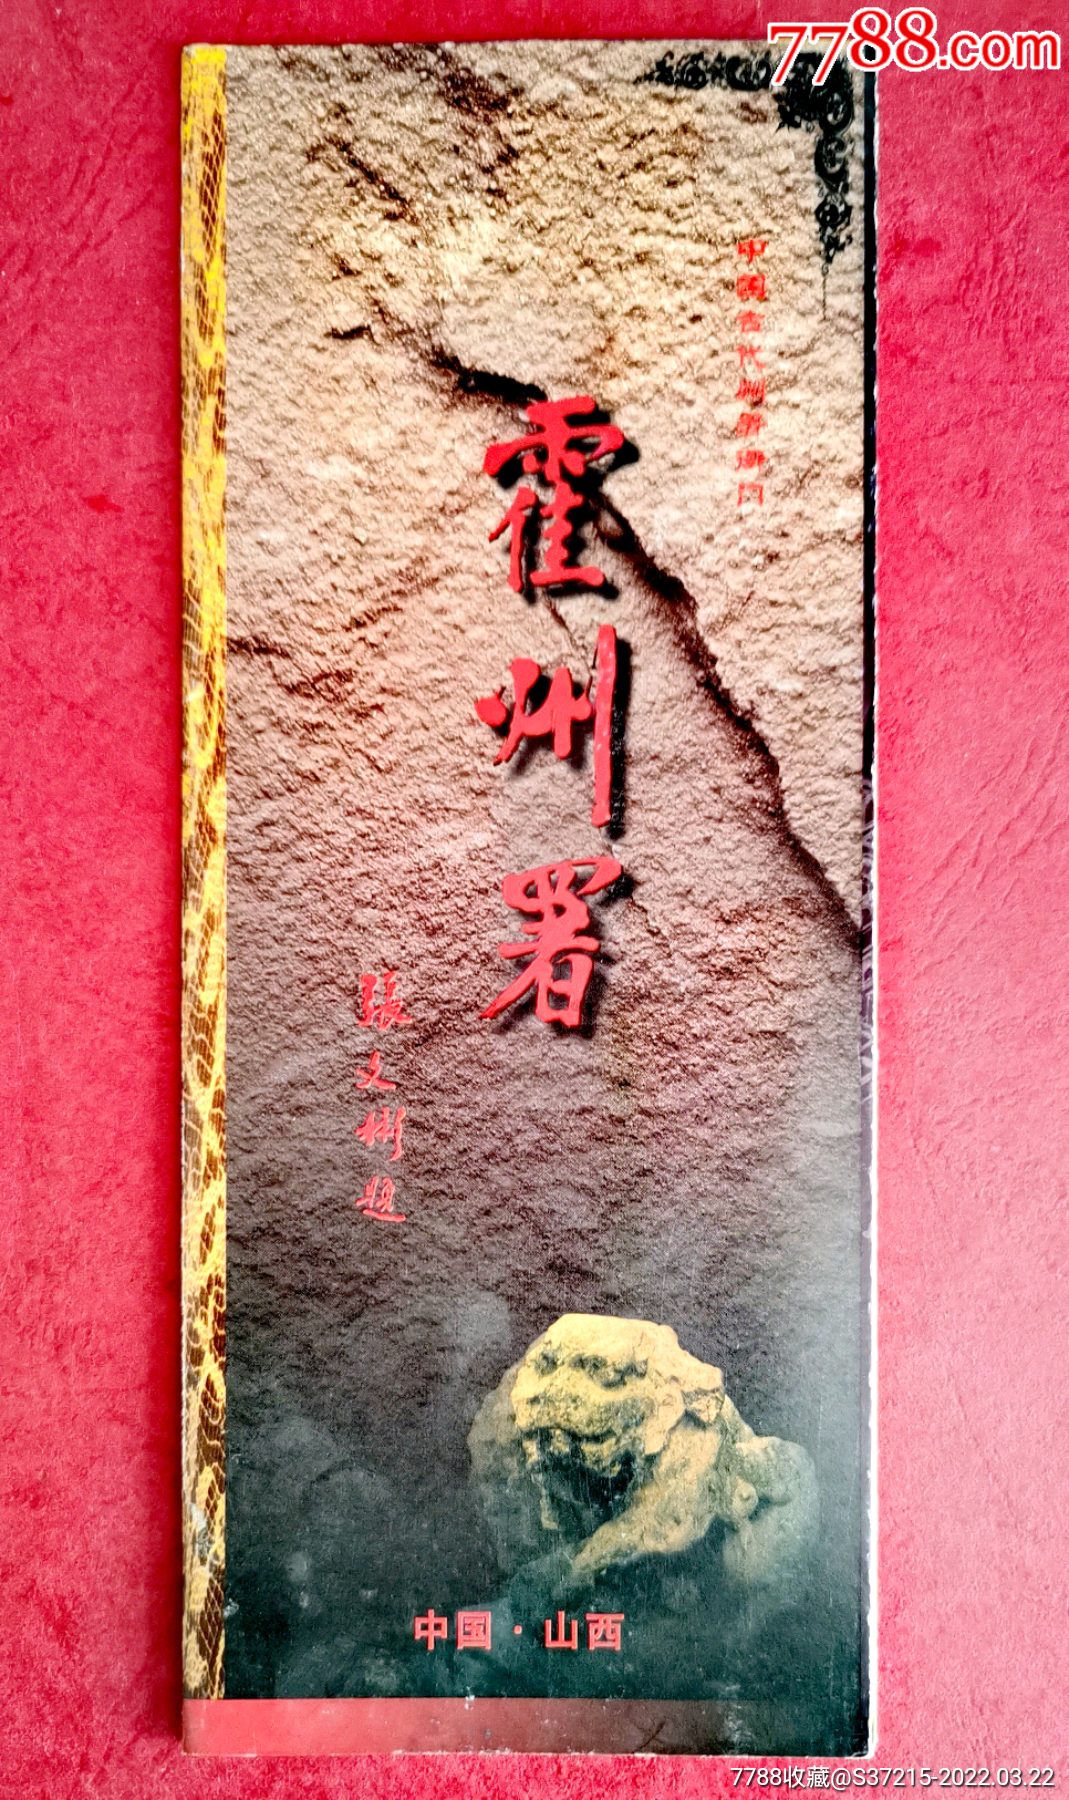 7788.com
中国古代州署衙门
霍州署
張文彬題
中国·山西
7788收藏@S37215-2022.03.22